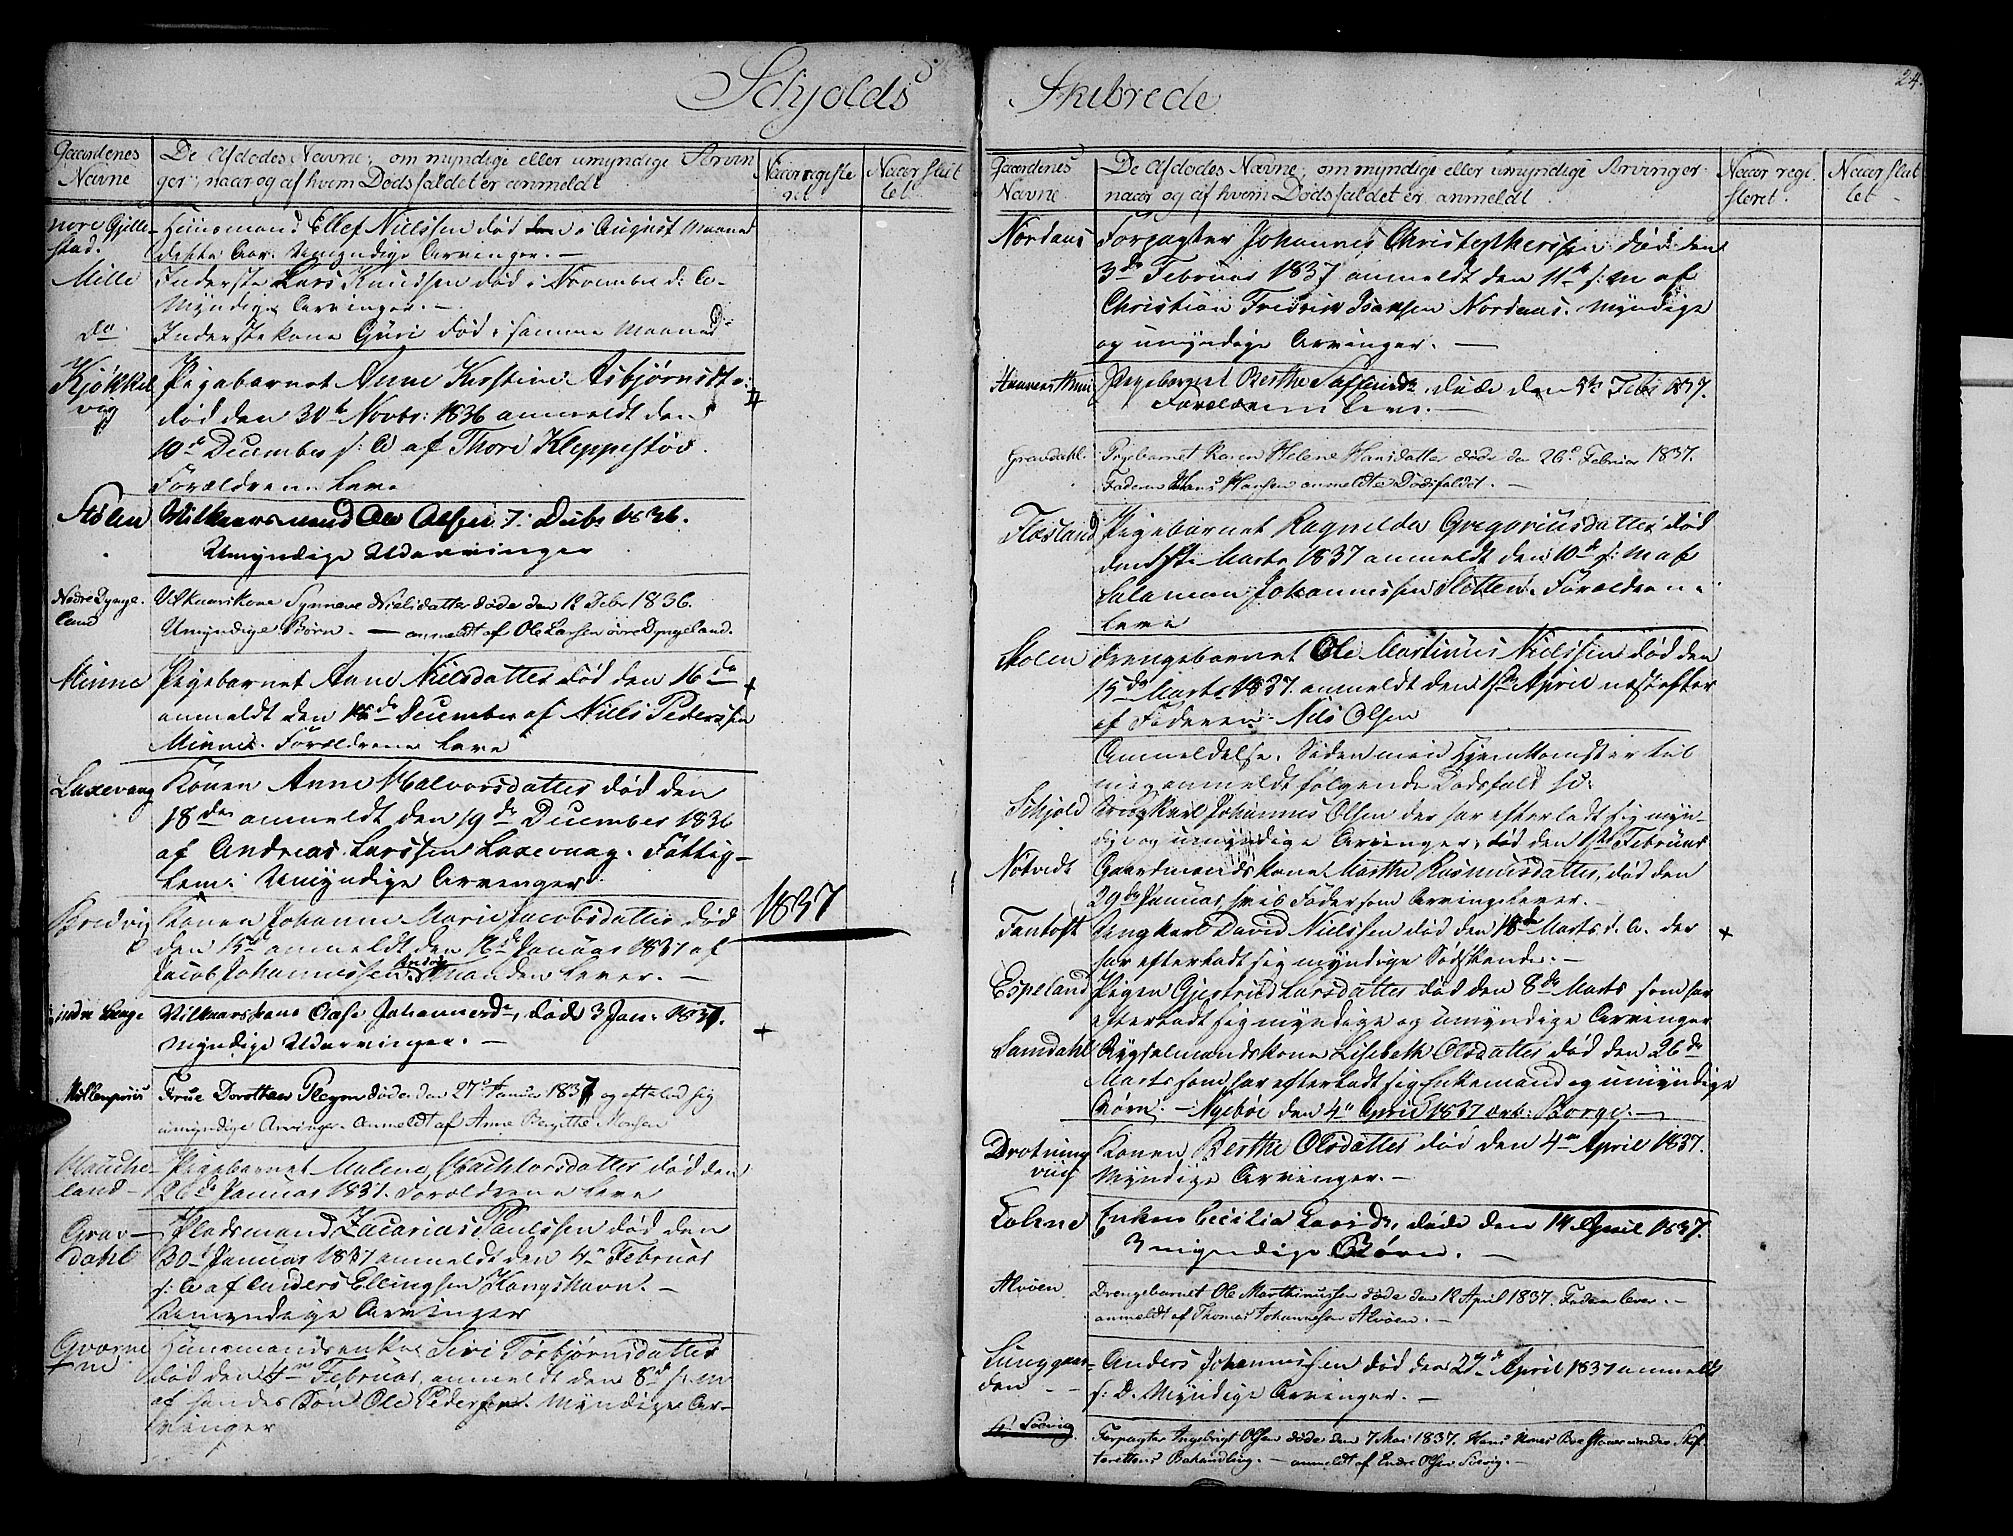 Schjolds
Gaardenes Navne
De Afdødes Navne, om myndige eller umyndige Arvin
ger; naar og af hvem Dødsfaldet er anmeldt
Naar registe
ret
Naar slut
tet
nore Gjelle
stad.
Huusmand Ellef Nielssen død i August Maaned
dette Aar. Umyndige Arvinger. —
Mille
Inderste Lars Knudsen død i November d: A.
Myndige Arvinger. —
do
Inderstekone Guri død i samme Maaned
Kjøkkel
vig
Pigebarnet Anne Kirstine Asbjørnsdtr:
død den 30te Novbr: 1836 anmeldt den
10de December s: A af Thore Kleppestøe.
Forældrene leve
Stølen
Vilkaarsmand Ole Olsen 7. Debr 1836.
Umyndige Udarvinger
Nedre Dynge-
land
Vilkaarskone Synneve Nielsdatter døde den 12 Debr 1836.
Umyndige Børn. — anmeldt af Ole Larsen øvre Dyngeland.
Minne
Pigebarnet Anne Nielsdatter død den 16de
anmeldt den 18de December af Niels Pederssen
Minne. Forældrene leve
Laxevaag
Konen Anne Halvorsdatter død den
18de anmeldt den 19de December 1836
af Andreas Larssen Laxevaag. Fattig-
lem. Umyndige Arvinger
1837
Bredvig
Konen Johanne Marie Jacobsdatter død
den 15de anmeldt den 16de Januar 1837 af
Jacob Johannessen Manden lever. —
indre Berge
Vilkaarskone Aase Johannesdr, døde 3 Jan: 1837.
myndige Udarvinger. —
Møllenpriis
Frue Dorothea Pleym døde den 27de Januar 1837 og efterlod sig
umyndige Arvinger. Anmeldt af Anne Birgithe Monsen
land —
Pigebarnet Malene død den
26de Januar 1837. Forældrene leve
Grav-
dahl
Pladsmand Zacarias Paulssen død den
30te Januar 1837 anmeldt den 4de Februar
s: A af Anders Ellingsen Kongshavn. —
Umyndige Arvinger
Qværne
Huusmandsenke Siri Torbjørnsdatter
død den 4de Februar, anmeldt den 8de s: m
af hendes Søn Ole Pedersen. Myndige Ar-
vinger
Skibrede
24.
Gaardenes
Navne
De Afdødes Navne, om myndige eller umyndige Arvinger
naar og af hvem Dødsfaldet er anmeldt
Naar regi-
steret.
Naar slut
tet
Nordaas
Forpagter Johannes Christophersen død den
3de Februar 1837 anmeldt den 11te s: m af
Christian Fredrik Isachsen Nordaas. Myndige
og umyndige Arvinger. —
Pigebarnet Berthe døde den 5te Febr 1837.
Forældrene leve. —
Gravdahl.
Pigebarnet Karen Helene Hansdatter døde den 26de Februar 1837.
Faderen Hans Hansen anmeldte Dødsfaldet. —
Fløsland
Pigebarnet Ragnilda Gregoriusdatter død
den Marts 1837 anmeldt den 10de s: m af
Salamon Johannessen Sletten. Forældrene
leve
Stølen
Drengebarnet Ole Martinus Nielssen død den
15de Marts 1837 anmeldt den 1ste April næstefter
af Faderen Nils Olsen
Anmeldelse. Siden min Hjemkomst er til
mig anmeldt følgende Dødsfald sc:
Schjold
Ungkarl Johannes Olsen der har efterladt sig myn-
dige og umyndige Arvinger, død den 1ste Februar
Nøtvedt
Gaardmandskone Marthe Rasmusdatter, død den
29de Januar, hvis Fader som Arving lever. —
Fantoft
Ungkarl David Nielssen død den 18de Marts d. A. der
har efterladt sig myndige Sødskende. —
Espeland
Pigen Gjertrud Larsdatter død den 8de Marts som har
efterladt sig myndige og umyndige Arvinger
Samdahl
Rydselmandskone Lisebeth Olsdatter død den 26de
Marts som har efterladt sig Enkemand og umyndige
Børn. — Nygebøe den 4de April 1837 Borge. —
Drotning
viig
Konen Berthe Olsdatter død den 4de April 1837.
Myndige Arvinger. —
Enken Cecilia døde den 14 April 1837.
3 myndige Børn. —
Alvøen
Drengebarnet Ole Marthinussen døde den 12 April 1837. Faderen lever. —
anmeldt af Thomas Johannesen Alvøen. —
Lungegaar-
den — -
Anders Johannessen død den 27de April 1837 anmeldt
s: D. Myndige Arvinger. —
Søvig
Forpagter Ingebrigt Olsen døde den 7 Mai 1837. Hans Kones Boe staaer under Skif-
terettens Behandling. — anmeldt af Endre Olsen Søvig. —